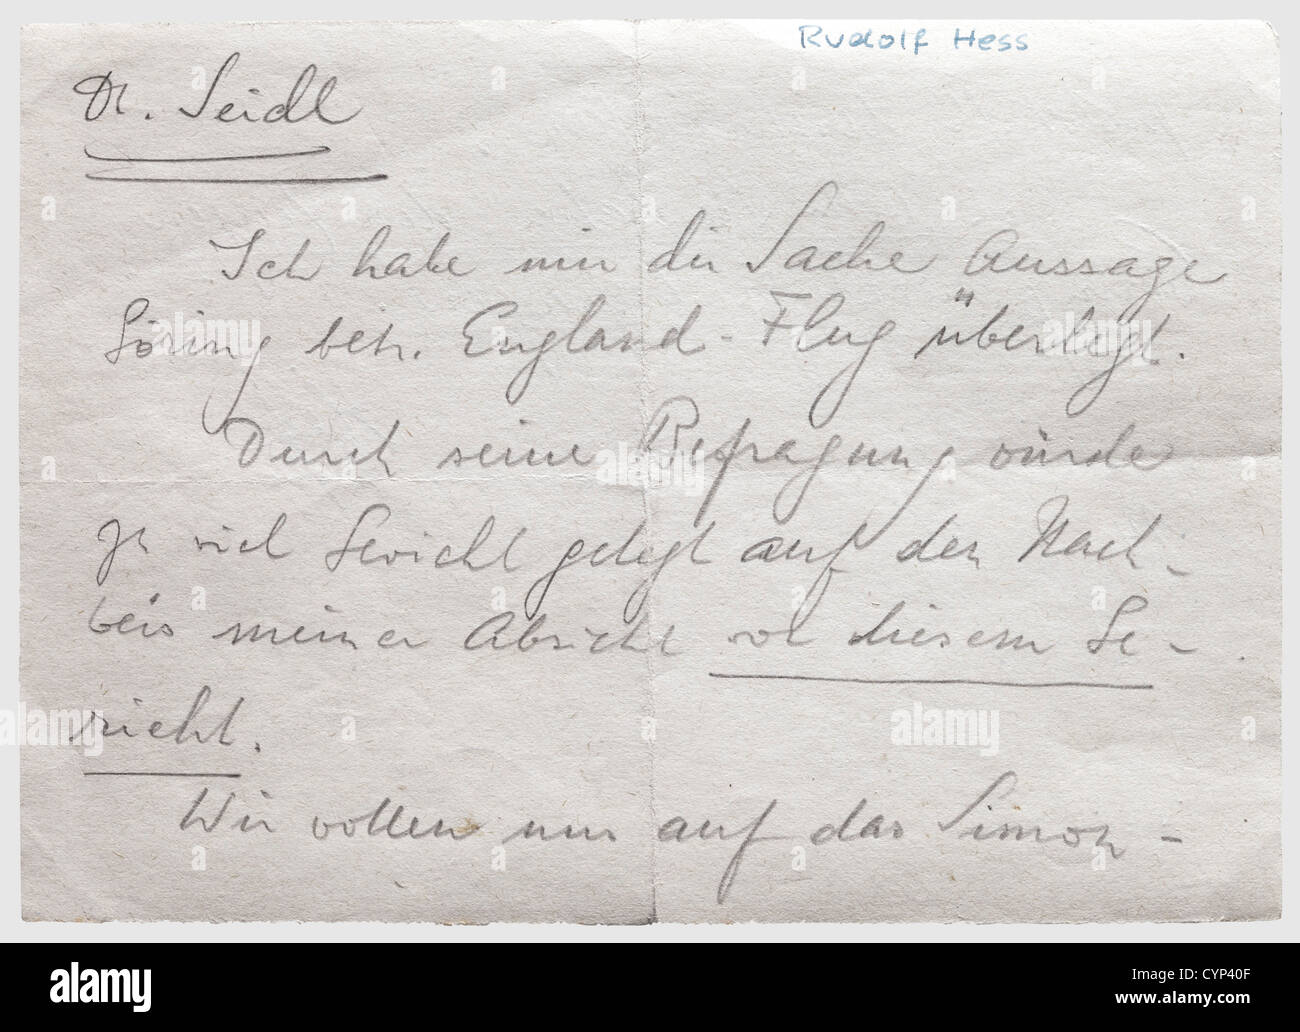 Rudolf Hess
Dr. Seidl
Ich habe mir die Sache Aussage
Göring betr. England-Flug überlegt.
Durch seine Befragung würde
zu viel Gewicht gelegt auf den Nach-
weis meiner Absicht vor diesem Ge-
richt.
Wir wollen uns auf das Simon-
alamy
alamy
alamy
Image ID: CYP40F
www.alamy.com